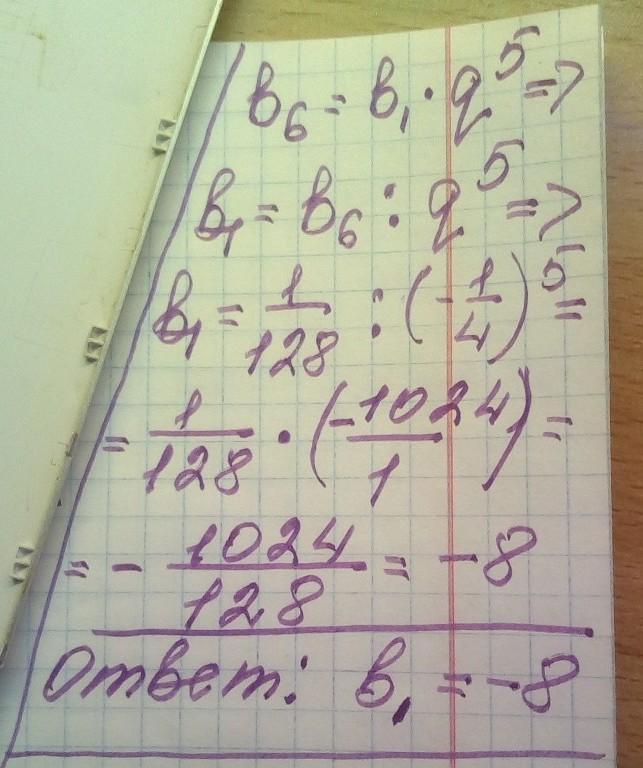 в₆ = в₁ · q⁵ =>
в₁ = в₆ : q⁵ =>
в₁ = 1/128 : (-1/4)⁵ =
= 1/128 · (-1024/1) =
= - 1024/128 = -8
Ответ: в₁ = -8